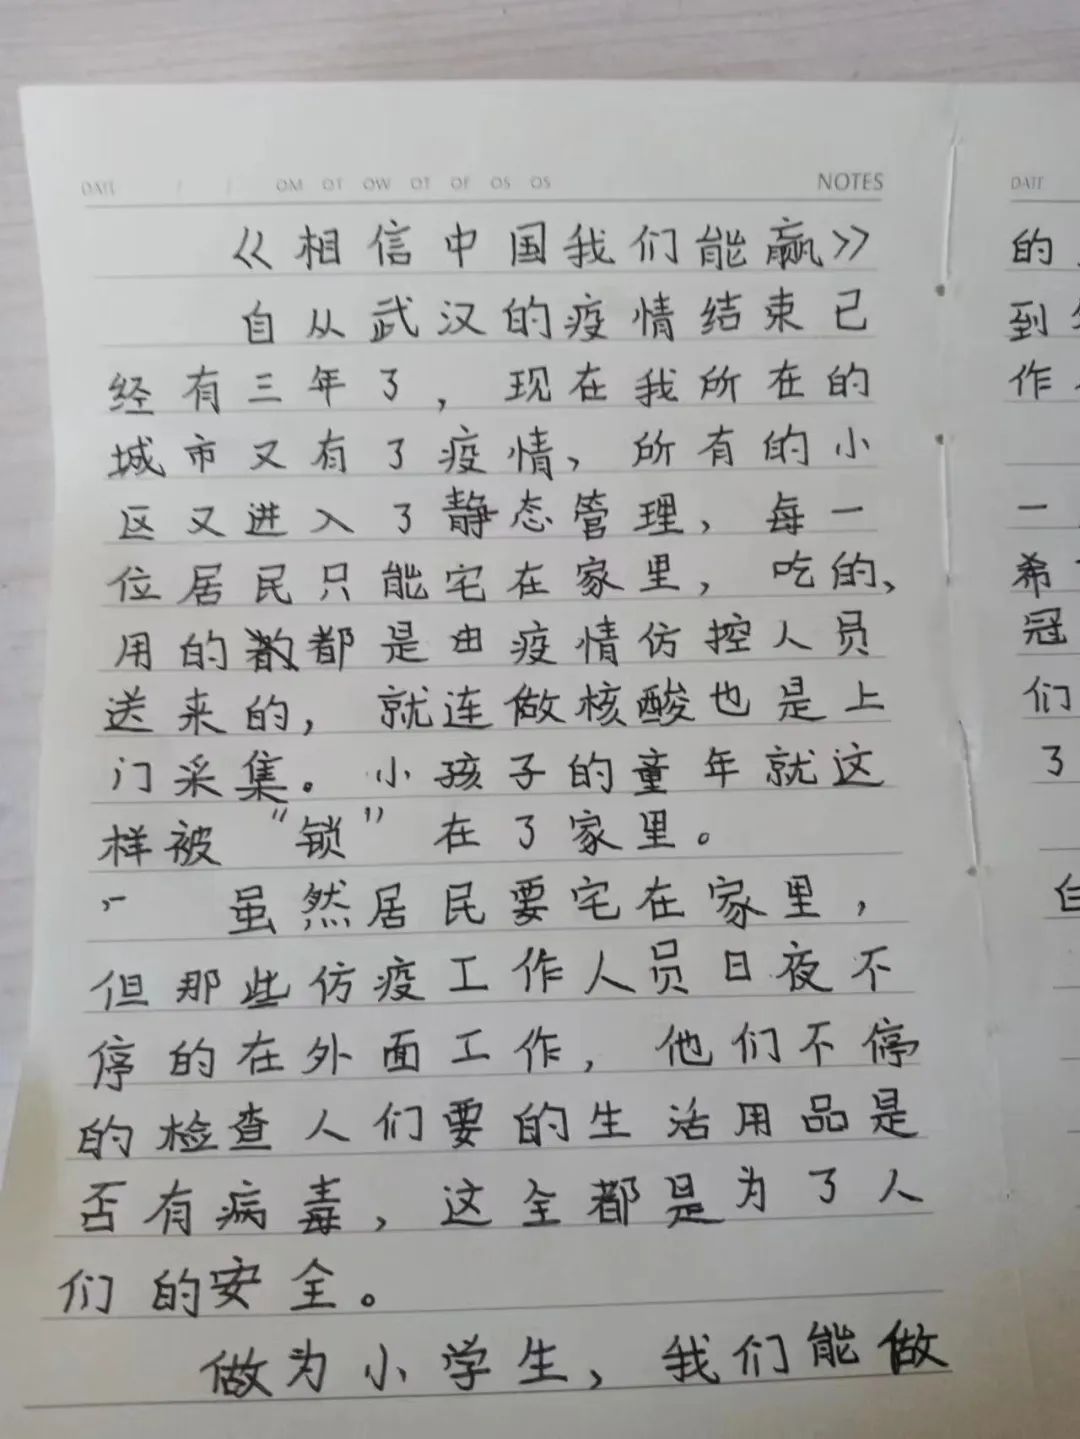 DATE / / OM OT OW OT OF OS OS NOTES
《相信中国我们能赢》
自从武汉的疫情结束已
经有三年了，现在我所在的
城市又有了疫情，所有的小
区又进入了静态管理，每一
位居民只能宅在家里，吃的、
用的都是由疫情仿控人员
送来的，就连做核酸也是上
门采集。小孩子的童年就这
样被“锁”在了家里。
虽然居民要宅在家里，
但那些仿疫工作人员日夜不
停的在外面工作，他们不停
的检查人们要的生活用品是
否有病毒，这全都是为了人
们的安全。
做为小学生，我们能做
DATE
的
到
作
一
希
冠
们
了